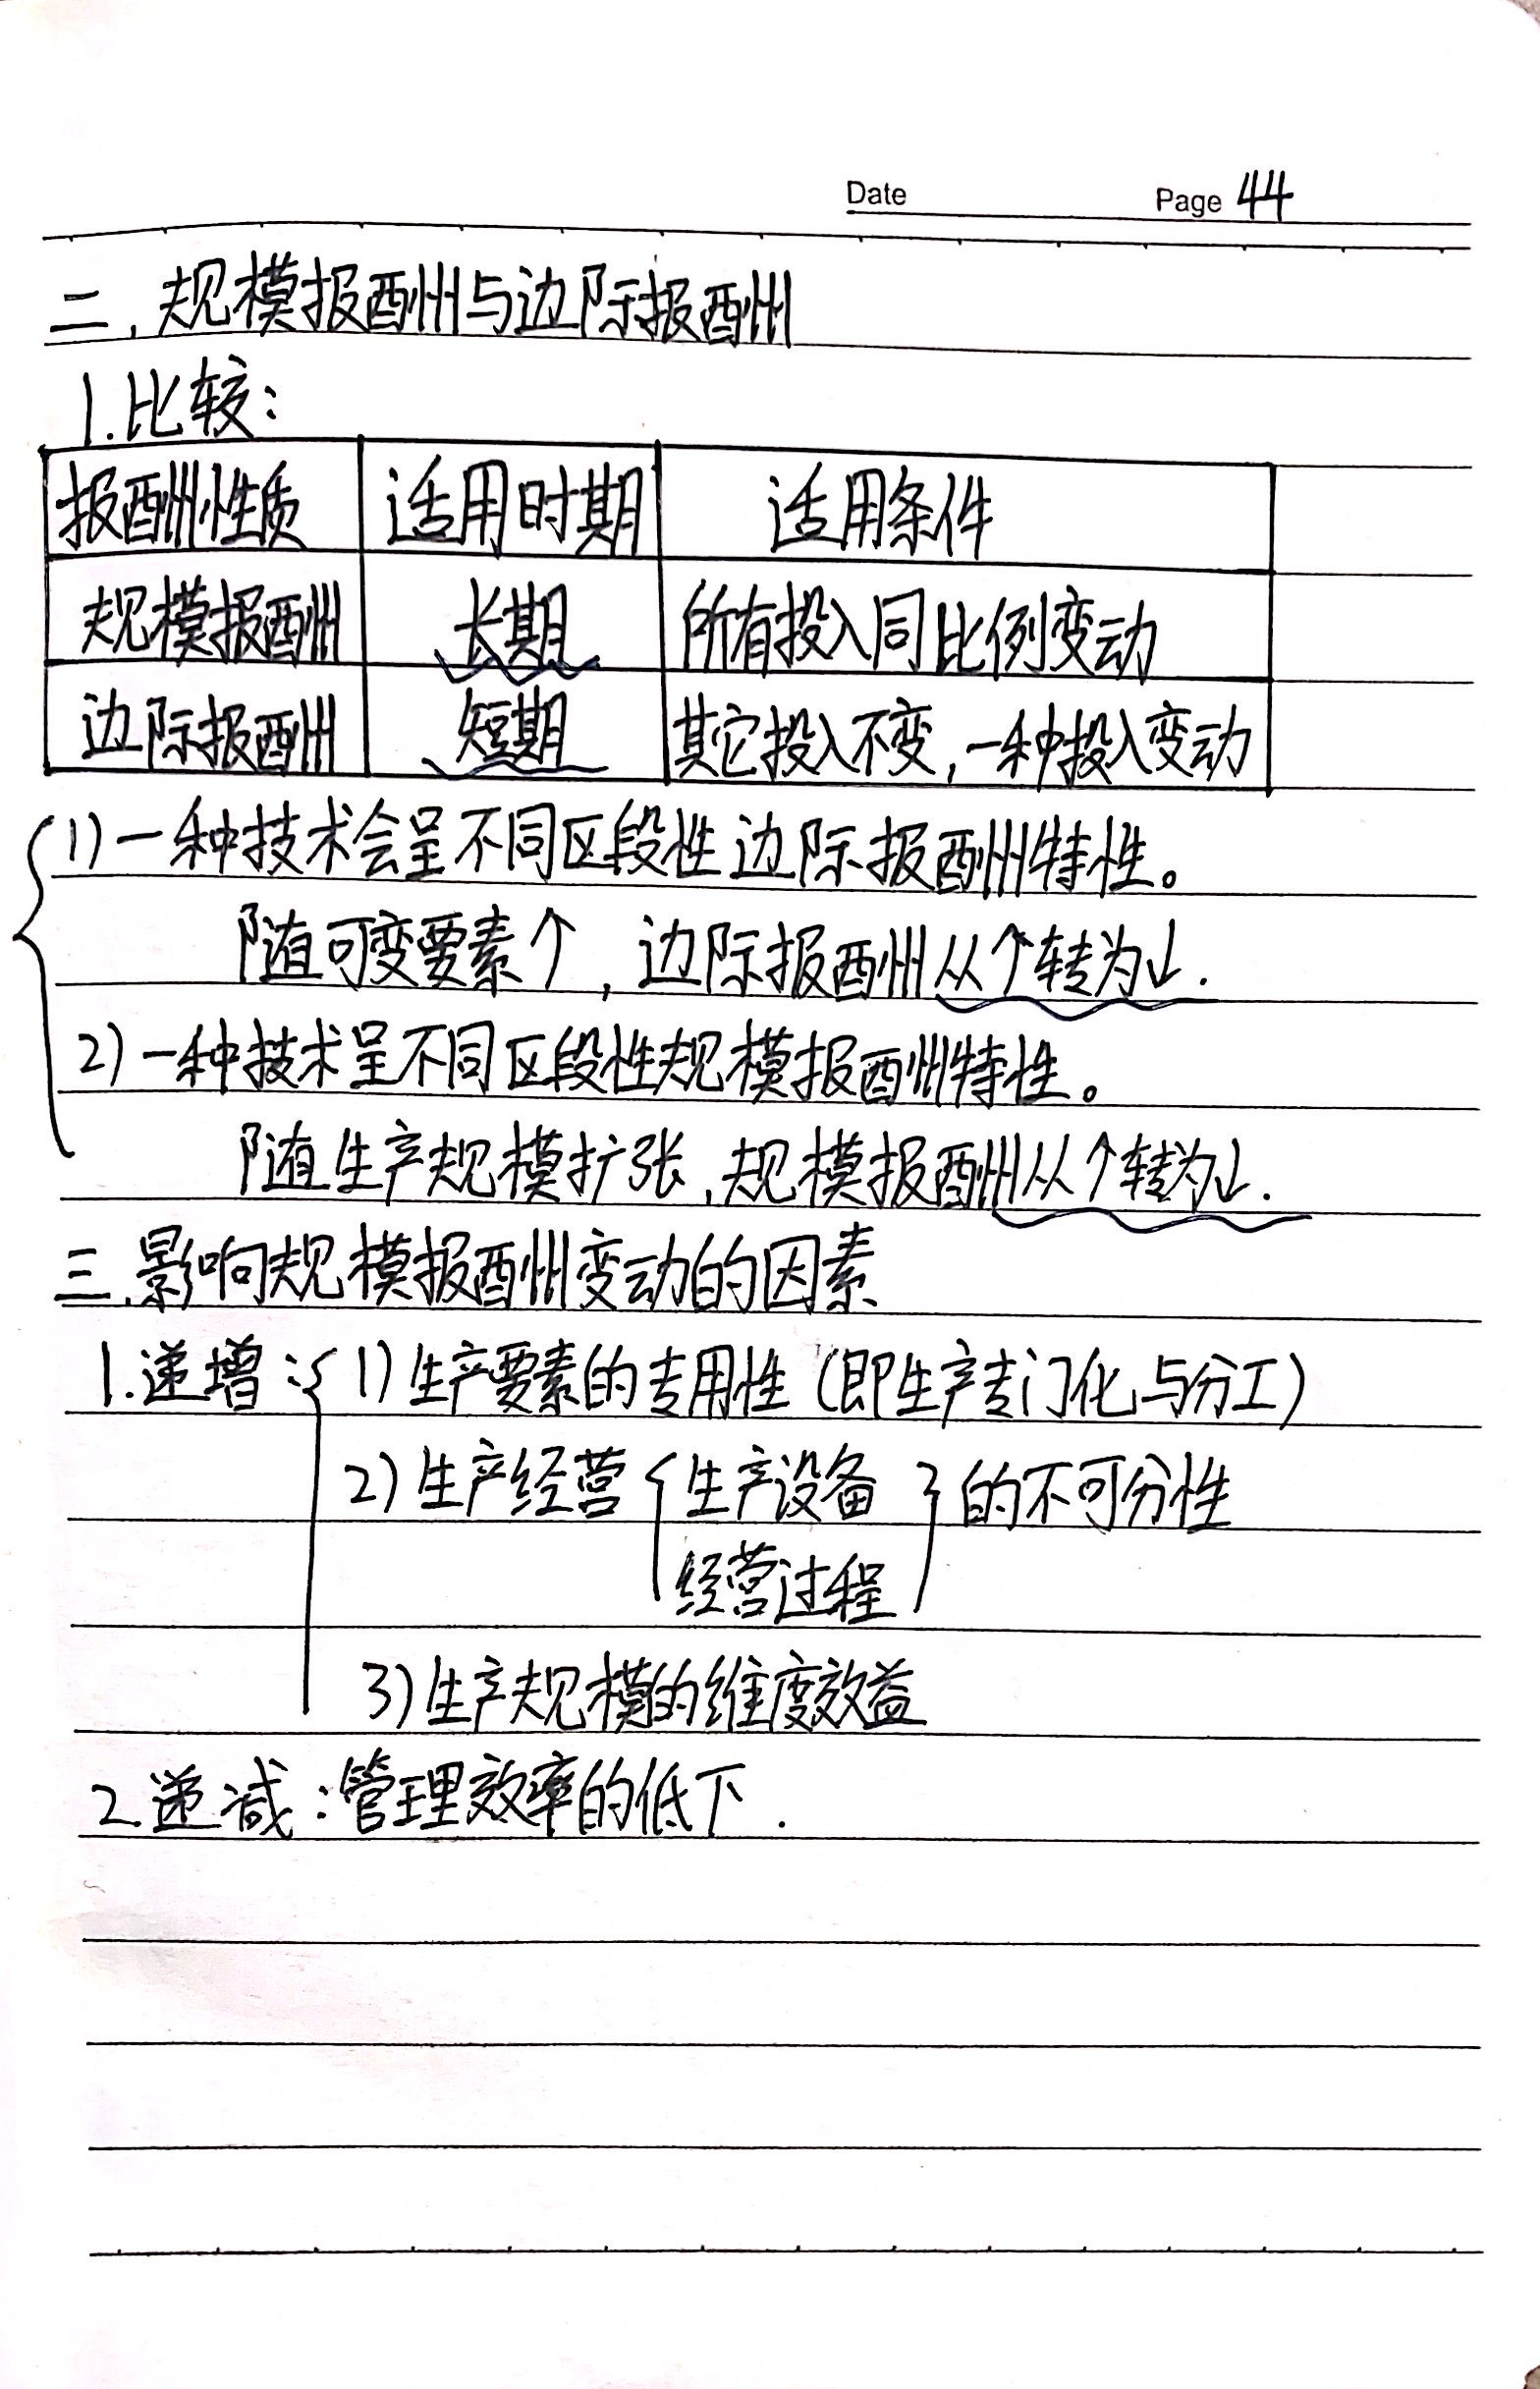 Date Page 44
二.规模报酬与边际报酬
1.比较:
报酬性质 适用时期 适用条件
规模报酬 长期 所有投入同比例变动
边际报酬 短期 其它投入不变,一种投入变动
1)一种技术会呈不同区段性边际报酬特性。
随可变要素↑,边际报酬从↑转为↓.
2)一种技术呈不同区段性规模报酬特性。
随生产规模扩张,规模报酬从↑转为↓.
三.影响规模报酬变动的因素
1.递增:{1)生产要素的专用性(即生产专门化与分工)
2)生产经营{生产设备}的不可分性
经营过程
3)生产规模的维度效益
2.递减:管理效率的低下.